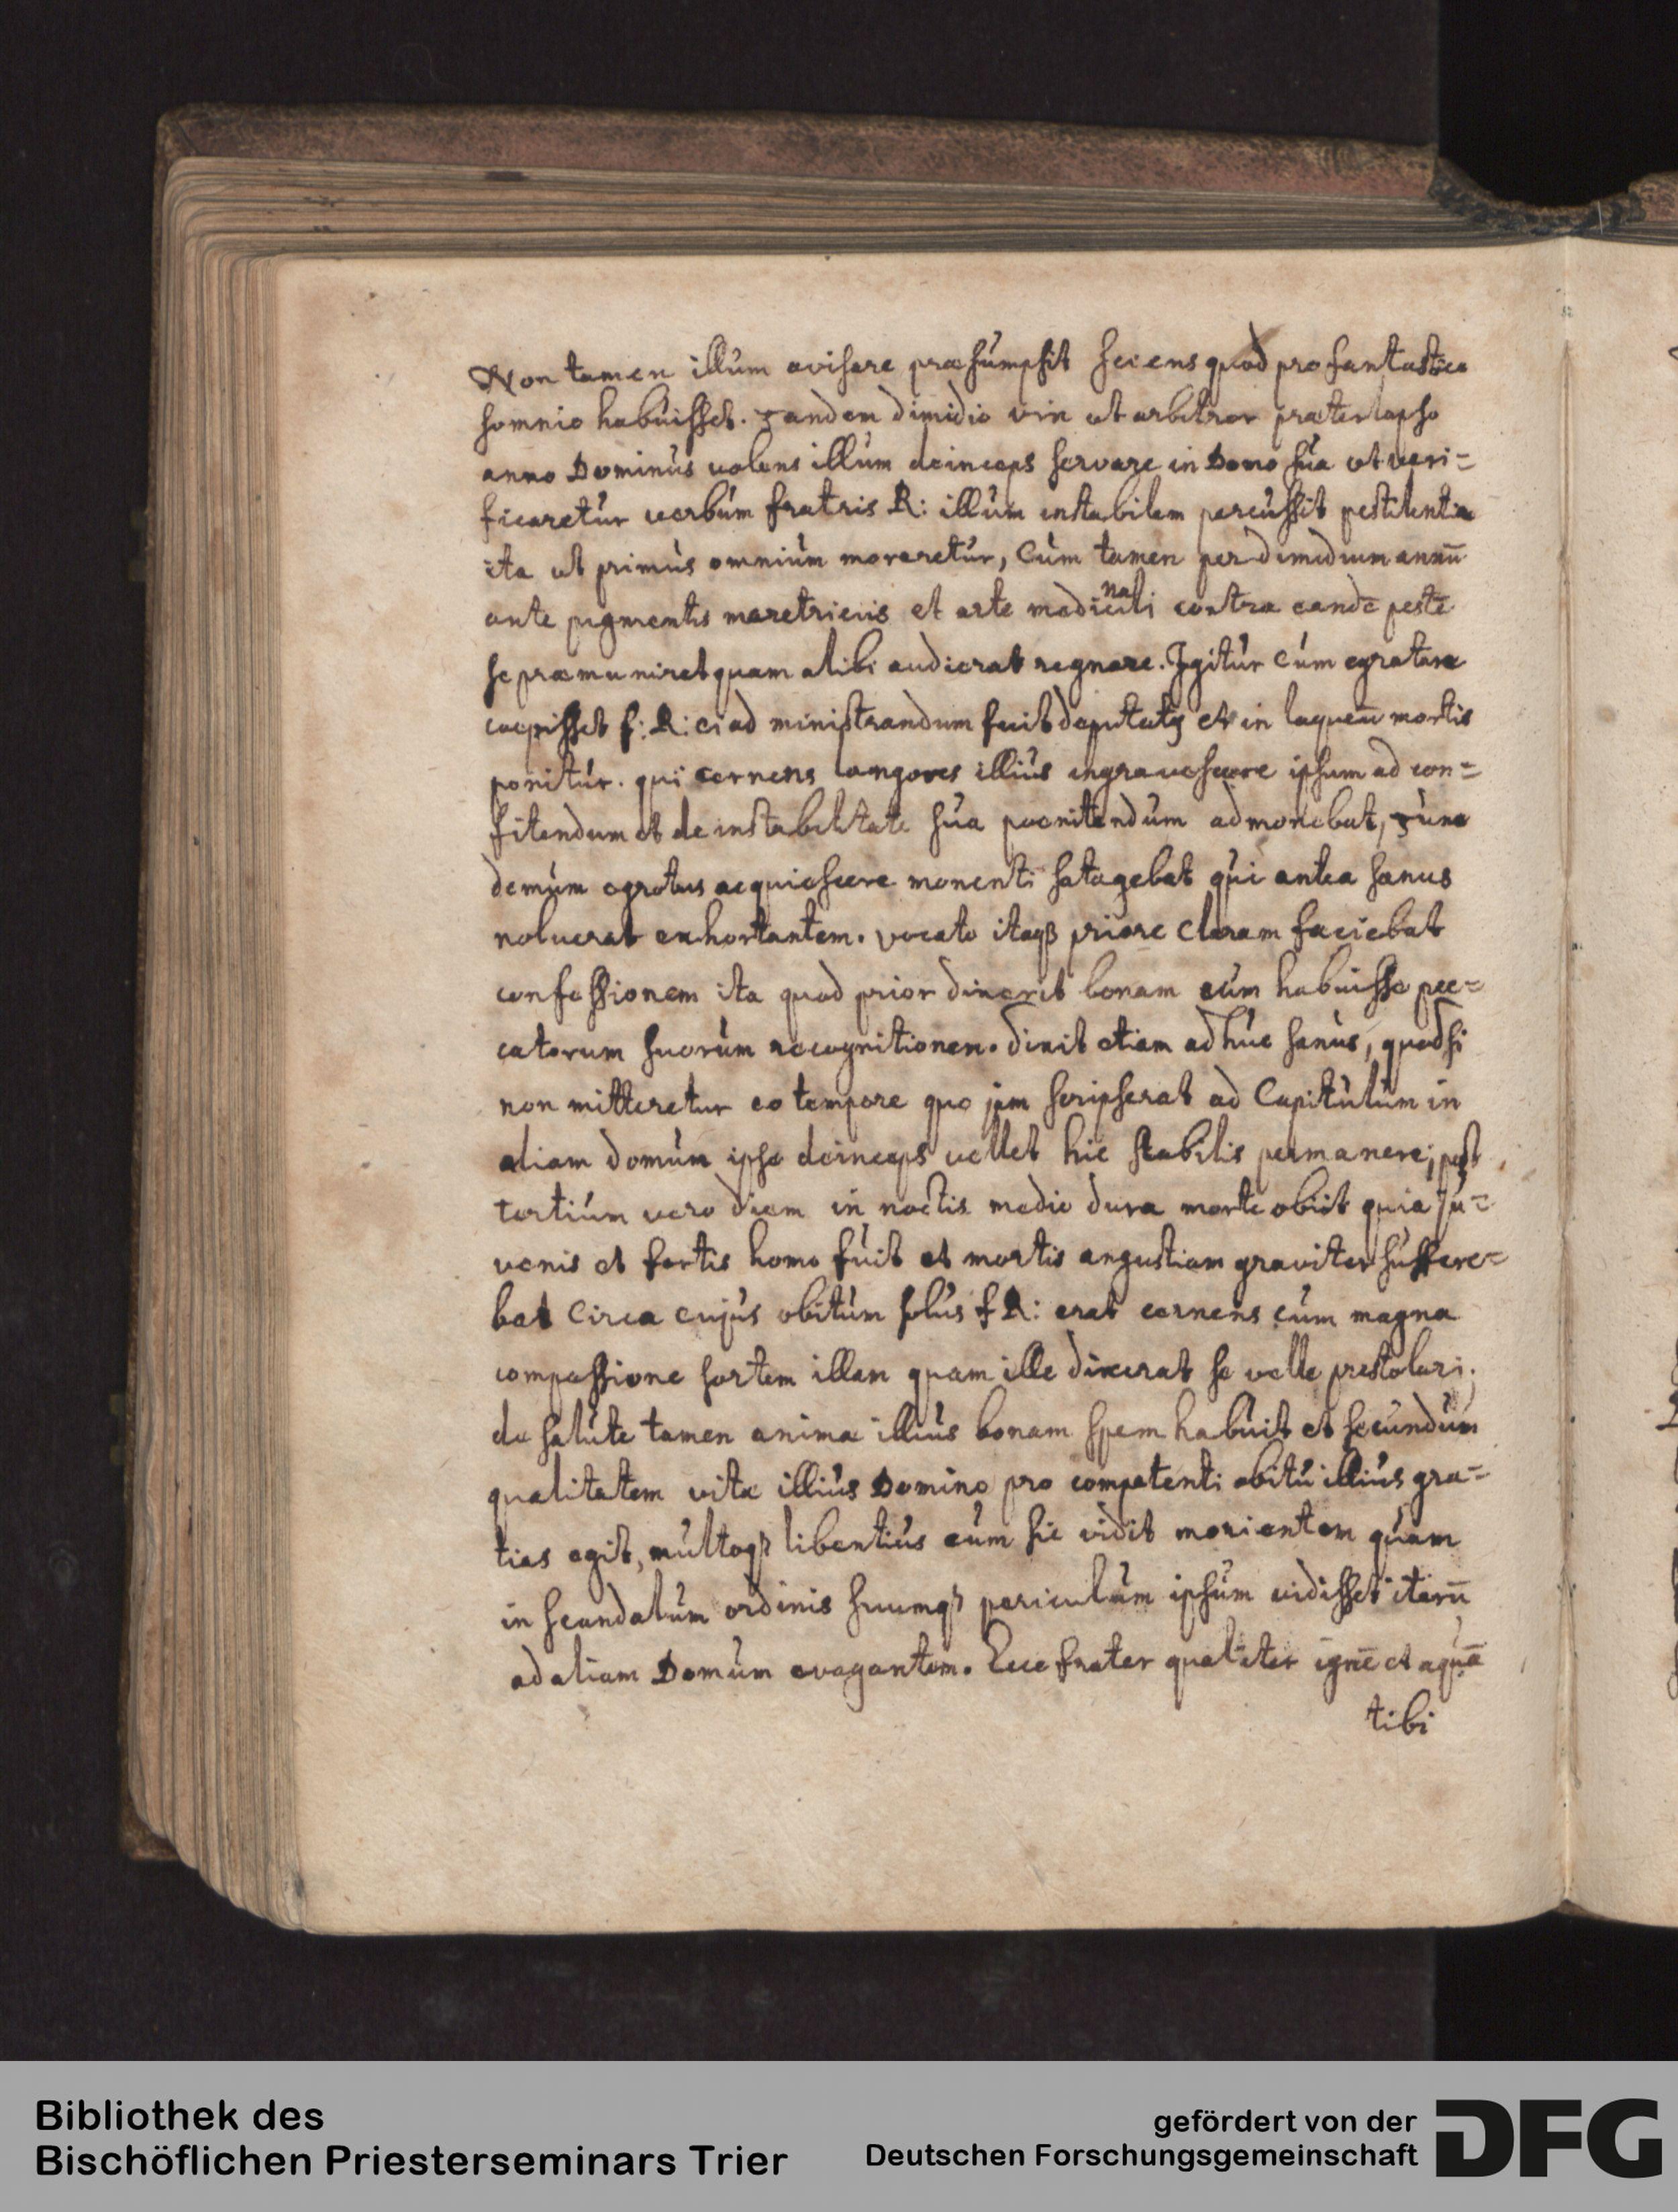 Non tamen illum avisare præsumpsit sciens quod pro fantastico
somnio habuisset. Tandem dimidio vix ut arbitror præterlapso
anno Dominus volens illum deinceps servare in Domo sua ut veri=
ficaretur verbum fratris R: illum instabilem percussit pestilentia
ita ut primus omnium moreretur, Cum tamen per dimidium annū
ante pigmentis meretriciis et arte medicinali contra eandē pestē
se præmuniret quam alibi audierat regnare. Igitur Cum egrotare
cœpisset f: R: ei ad ministrandum fuit deputatꝰ et in laqueū mortis
ponitur. qui cernens langores illius ingravescere ipsum ad con=
fitendum et de instabilitate sua pœnitendum admonebat, Tunc
demum egrotus acquiescere monenti satagebat qui antea sanus
noluerat exhortantem. vocato itaqꝫ priore Claram faciebat
confessionem ita quod prior dixerit bonam eum habuisse pec=
catorum suorum recognitionem. dixit etiam adhuc sanus, quod si
non mitteretur eo tempore quo jam scripserat ad Capitulum in
aliam domum ipse deinceps vellet hic stabilis permanere; post
tertium vero diem in noctis medio dura morte obiit quia Ju=
venis et fortis homo fuit et mortis angustiam graviter suffere=
bat Circa cujus obitum solus f R: erat cernens cum magna
compassione sortem illam quam ille dixerat se velle prestolari;
de salute tamen animæ illius bonam spem habuit et secundum
qualitatem vitæ illius Domino pro competenti obitu illius gra=
tias egit, multoqꝫ libentius eum sic vidit morientem quam
in scandalum ordinis suumqꝫ periculum ipsum vidisset iterū
ad aliam Domum evagantem. Ecce frater qualiter ignē et aquā
tibi
Bibliothek des
Bischöflichen Priesterseminars Trier
gefördert von der
Deutschen Forschungsgemeinschaft
DFG